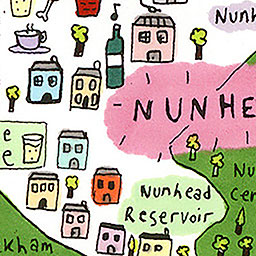 Nunh
NUNHE
e
e
Nunhead
Reservoir
Nu
Cer
kham